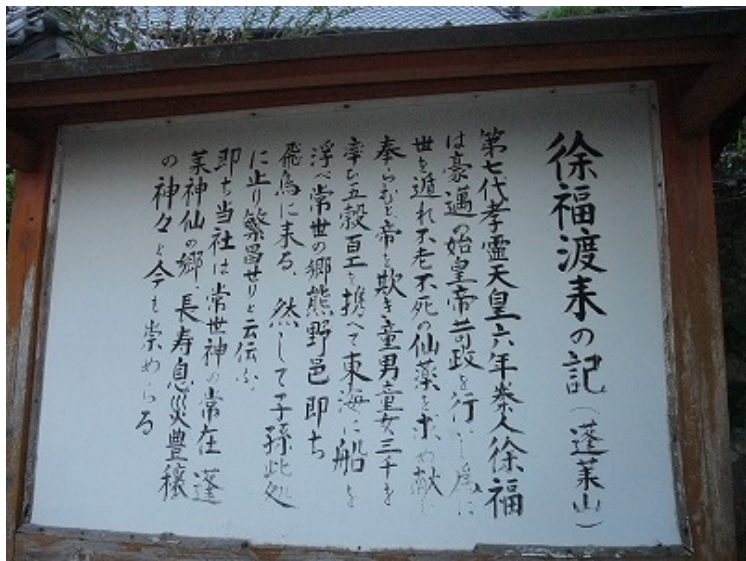 徐福渡来の記(蓬莱山)
第七代孝霊天皇六年秦人徐福
は豪邁の始皇帝苛政を行いし為に
世を遁れ不老不死の仙薬を求め献じ
奉らむと帝を欺き童男童女三千を
率ひ五穀百工を携へて東海に船を
浮べ常世の郷熊野邑即ち
飛鳥に来る 然して子孫此処
に止り繁昌せりと云伝ふ
即ち当社は常世神の常在 蓬
莱神仙の郷、長寿息災豊穣
の神々と今も崇めらる